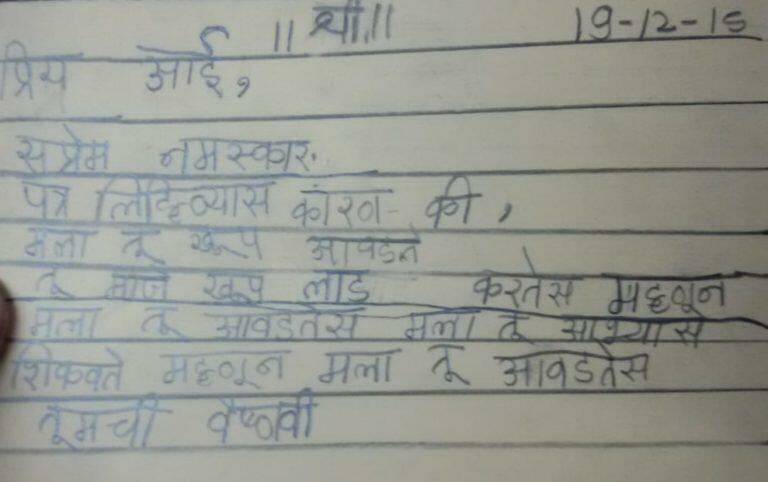 ॥ श्री.॥ 19-12-15
प्रिय आई,
सप्रेम नमस्कार.
पत्र लिहिण्यास कारण- की,
मला तू खूप आवडते
तू माजे खूप लाड करतेस म्हणून
मला तू आवडतेस मला तू आभ्यास
शिकवते म्हणून मला तू आवडतेस
तूमची वैष्णवी